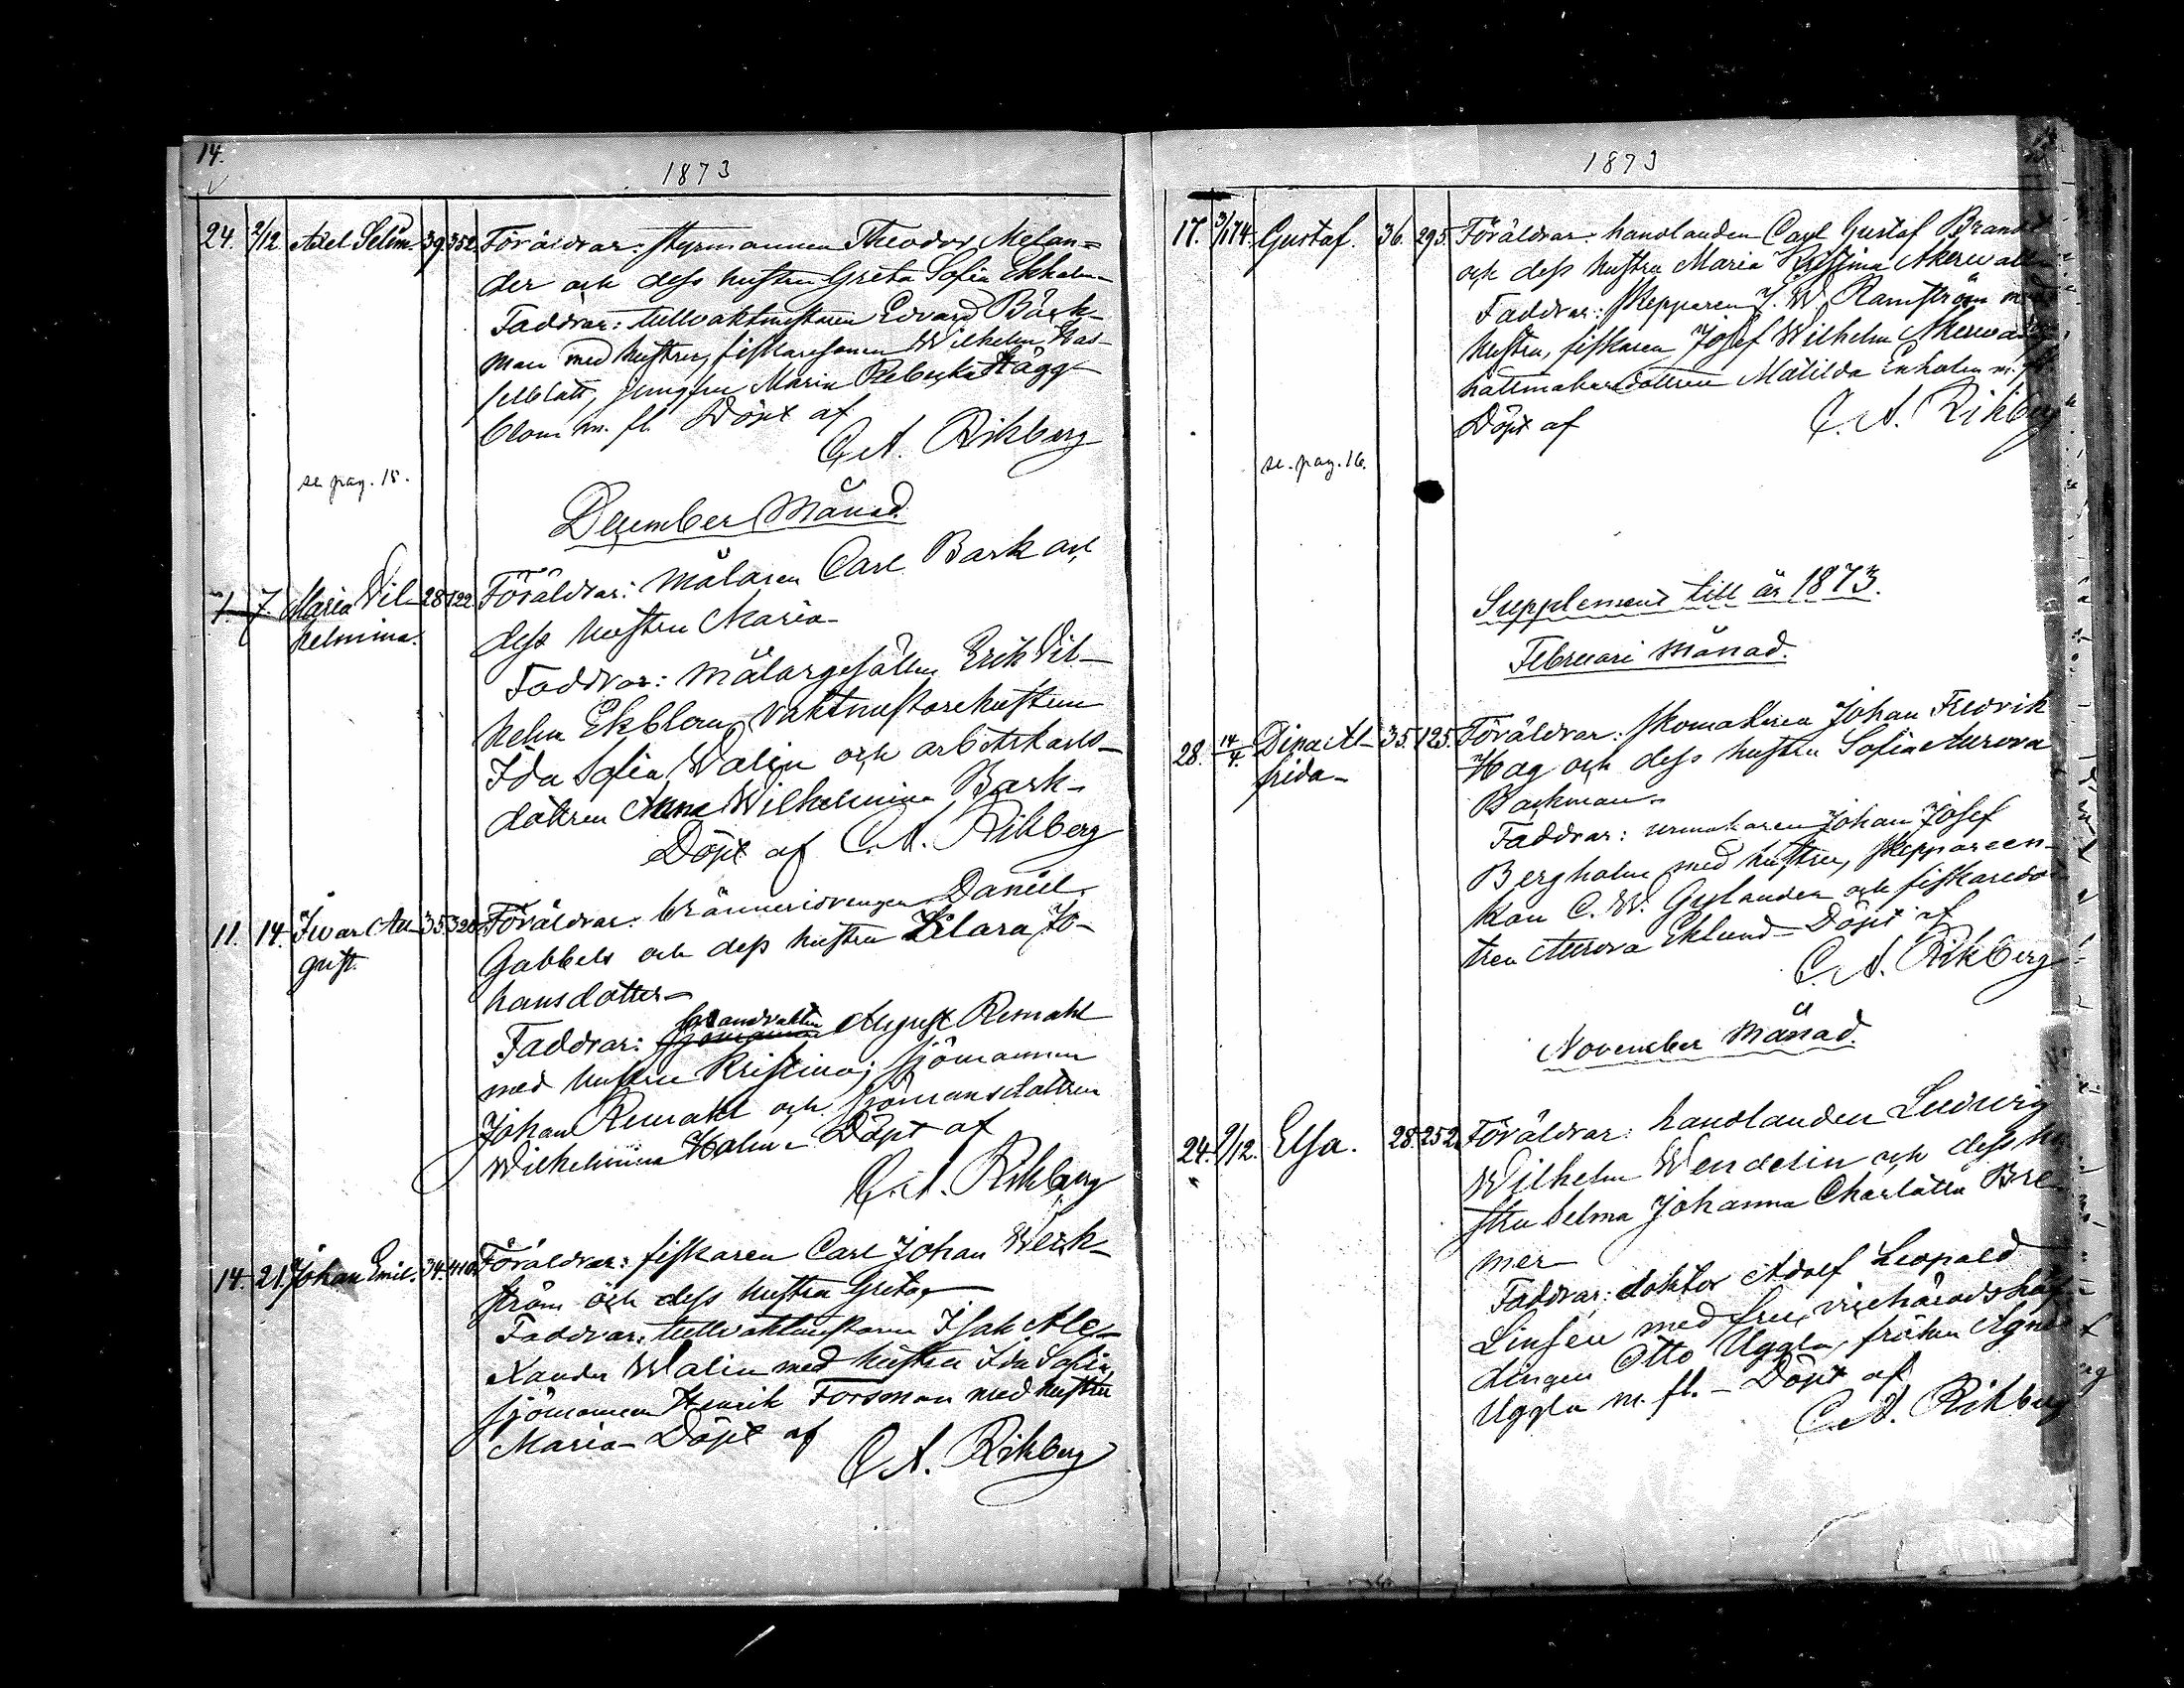 14.
1873
24. 2/12. Axel Selim. 39. 352. Föräldrar: styrmannen Theodor Melan=
der och dess hustru Greta Sofia Ekholm
Faddrar: tullvaktmästaren Edvard Bäck-
man med hustru, fiskaresonen Wilhelm Has-
selblatt, jungfru Maria Rebecka Hägg-
blom m. fl. Döpt af
C. A. Rikberg
se pag. 15.
December Månad.
7. 7. Maria Vil- 28. 122. Föräldrar: Målaren Carl Bark och
helmina. dess hustru Maria-
Faddrar: Målargesällen Erik Vil-
helm Ekblom, vaktmästarehustrun
Ida Sofia Walin och arbetskarls-
dottren Anna Wilhelmina Bark-
Döpt af C. A. Rikberg
11. 14. Ivar Au- 35. Föräldrar: brännеridrengen Daniel
gust. Gabbels och dess hustru Klara Jo-
hansdotter-
Faddrar: August Remahl
med hustru Kristina; sjömannen
Johan Remahl och sjömansdottren
Wilhelmina Holm- Döpt af
C. A. Rikberg
14. 21. Johan Emil. 34. 410. Föräldrar: fiskaren Carl Johan Werk-
ström och dess hustru Greta-
Faddrar: tullvaktmästaren Isak Ale-
xander Walin med hustru Ida Sofia,
sjömannen Henrik Forsman med hustru
Maria- Döpt af
C. A. Rikberg
1873
17. 3/1 74. Gustaf. 36. 295. Föräldrar: handlanden Carl Gustaf Brandt
och dess hustru Maria Kristina Akerwall
Faddrar: skepparen J. W. Ramström med
hustru, fiskaren Josef Wilhelm Akerwall
hattmakaredottren Matilda Enholm m. fl.
Döpt af C. A. Rikberg
se. pag. 16.
Supplement till år 1873.
Februari Månad.
28. 14/4. Dina Al- 35. 125. Föräldrar: skomakaren Johan Fredrik
frida- Hag och dess hustru Sofia Aurora
Backman-
Faddrar: urmakaren Johan Josef
Bergholm med hustru, skeppareen-
kan C. W. Gylander och fiskaredot
tren Aurora Eklund- Döpt af
C. A. Rikberg
November Månad.
24. 9/12. Elsa. 28. 252. Föräldrar: handlanden Ludvig
Wilhelm Wendelin och dess hu
stru Selma Johanna Charlotta Bre
mer-
Faddrar: doktor Adolf Leopold
Linsén med fru, vicehäradshöf
dingen Otto Uggla, fröken Agnes
Uggla m. fl. - Döpt af
C. A. Rikberg